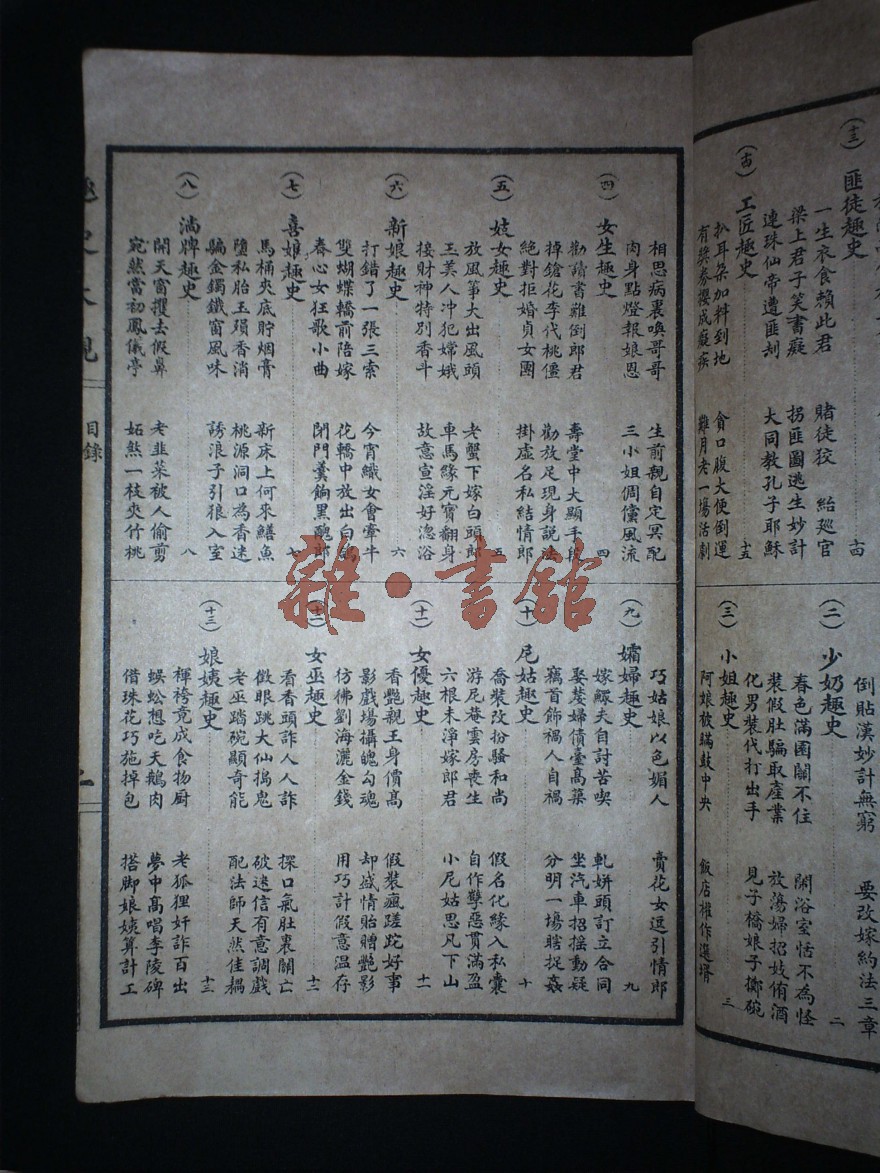 (十三) 匪徒趣史 十四
一生衣食頼此君 賭徒狡 紿廵官
梁上君子笑書癡 拐匪圖逃生妙計
連珠仙帝遭匪刦 大同教孔子耶穌
(十四) 工匠趣史 十五
扒耳朶加料到地 貪口腹大便倒運
有獎券櫻成癡疾 難月老一場活劇
倒貼漢妙計無窮 要改嫁約法三章
(二) 少奶趣史 二
春色滿園關不住 閙浴室恬不為怪
裝假肚騙取產業 放蕩婦招妓侑酒
化男裝代打出手 見子橋娘子擲碗
(三) 小姐趣史 三
阿娘被瞞鼓中央 飯店權作選壻
相思病裏喚哥哥 生前親自定冥配
肉身點燈報娘恩 三小姐倜儻風流
(四) 女生趣史 四
勸請書難倒郎君 壽堂中大顯手段
掉鎗花李代桃僵 勸放足現身說法
絕對拒婚貞女團 掛虛名私結情郎
(五) 妓女趣史 五
放風箏大出風頭 老蟹下嫁白頭郎
玉美人冲犯嫦娥 車馬緣元寳翻身
接財神特別香斗 故意宣淫好澆浴
(六) 新娘趣史 六
打錯了一張三索 今宵織女會牽牛
雙蝴蝶轎前陪嫁 花轎中放出白鴿
春心女狂歌小曲 閉門羹餉黑醜郎
(七) 喜娘趣史 七
馬桶夾底貯烟膏 新床上何來鱔魚
墮私胎玉殞香消 桃源洞口為香迷
騙金鐲鐵窗風味 誘浪子引狼入室
(八) 淌牌趣史 八
開天窗攫去假鼻 老韭菜被人偷剪
宛然當初鳳儀亭 妬煞一枝夾竹桃
巧姑娘以色媚人 賣花女逗引情郎
(九) 孀婦趣史 九
嫁鰥夫自討苦喫 軋姘頭訂立合同
娶嫠婦債臺高築 坐汽車招搖動疑
竊首飾禍人自禍 分明一場瞎捉姦
(十) 尼姑趣史 十
喬裝改扮騷和尚 假名化緣入私囊
游尼菴雲房喪生 自作孽惡貫滿盈
六根未淨嫁郎君 小尼姑思凡下山
(十一) 女優趣史 十一
香艷親王身價高 假裝瘋蹉跎好事
影戲場攝魄勾魂 却盛情貽贈艷影
仿彿劉海灑金錢 用巧計假意溫存
(十二) 女巫趣史 十二
看香頭詐人人詐 探口氣肚裏關亡
徵眼跳大仙搗鬼 破迷信有意調戲
老巫踏碗顯奇能 配法師天然佳耦
(十三) 娘姨趣史 十三
褌袴竟成食物厨 老狐狸奸詐百出
蜈蚣想吃天鵝肉 夢中高唱李陵碑
借珠花巧施掉包 搭脚娘姨算計工
目錄
雜·書館